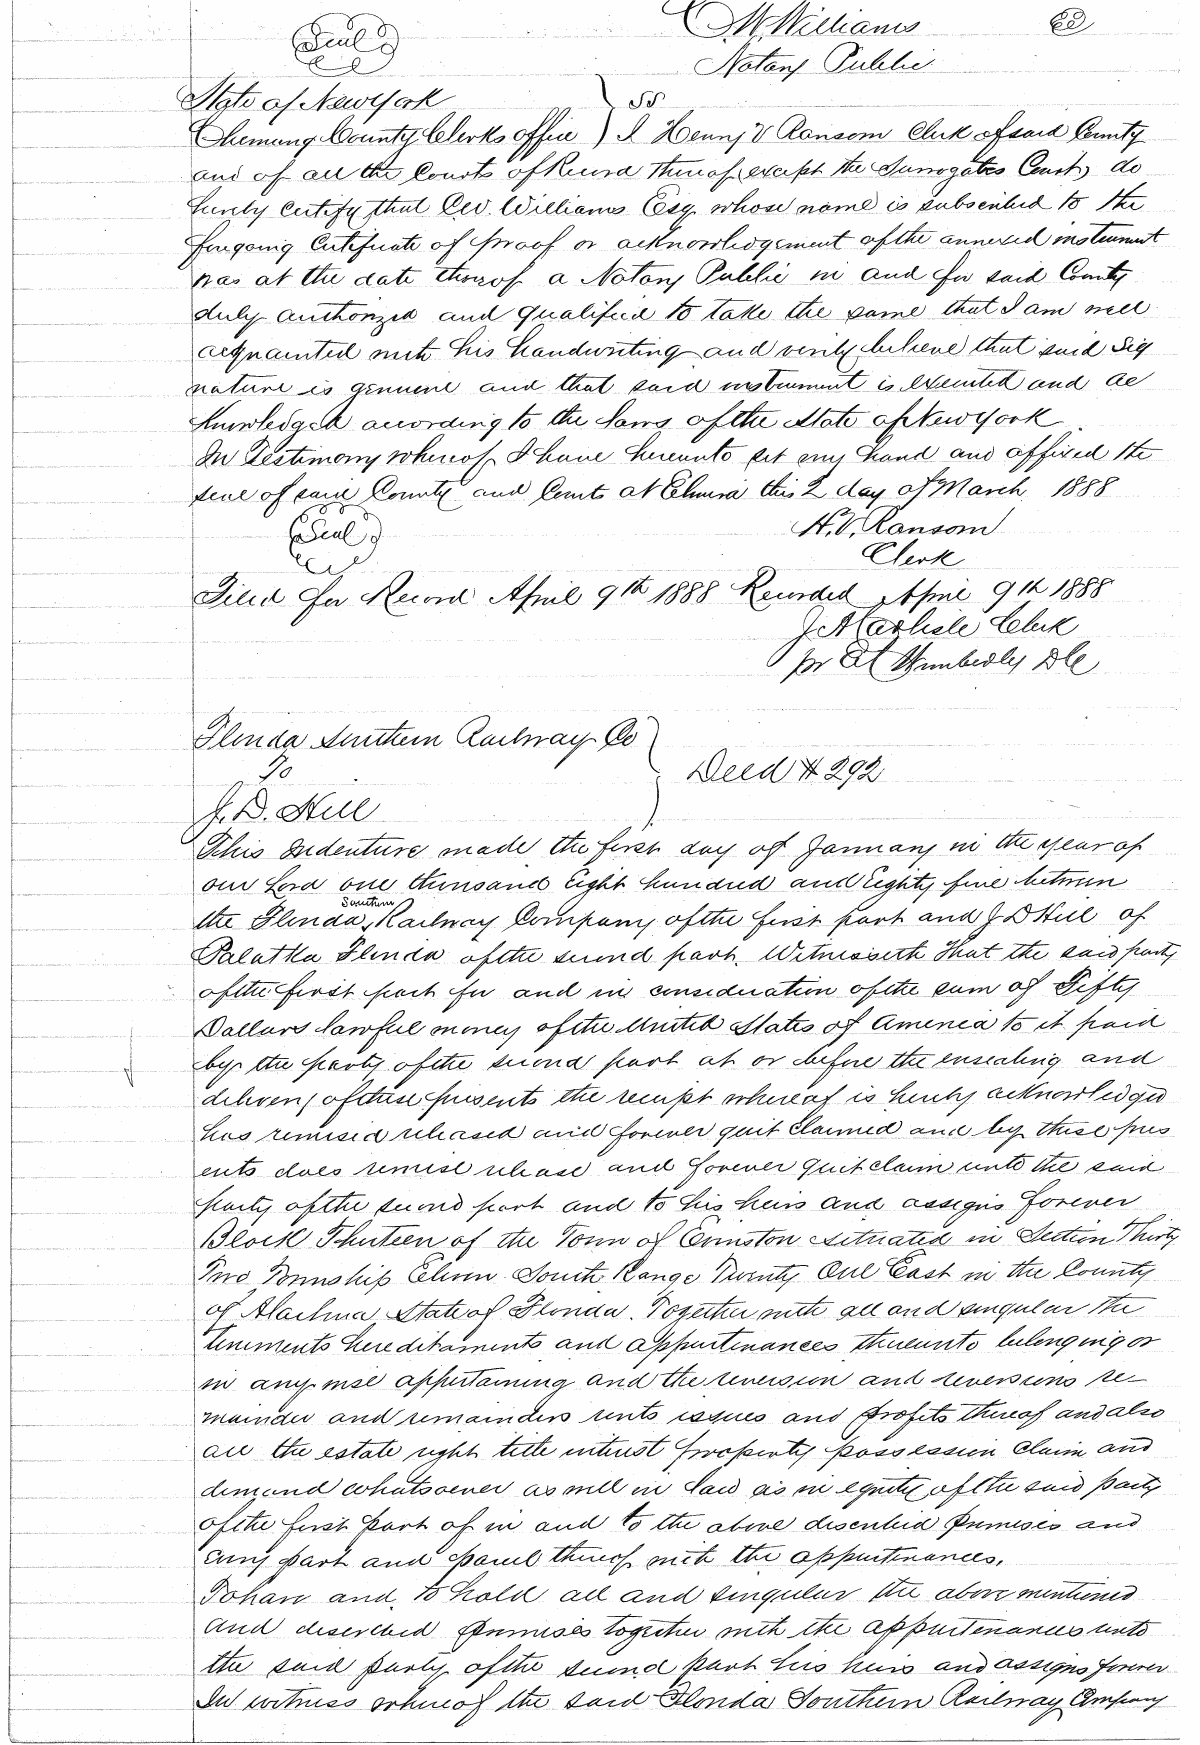 M Williams
Notary Public
Seal
State of NewYork ) SS
Chemung County Clerks office ) I Henry V Ransom Clerk of said County
and of all the Courts of Record thereof except the Surrogates Court, do
hereby certify that Williams Esq. whose name is subscribed to the
foregoing Certificate of proof or acknowledgement of the annexed instrument
was at the date thereof a Notary Public in and for said County
duly authorized and qualified to take the same that I am well
acquainted with his handwriting and verily believe that said Sig
nature is genuine and that said instrument is executed and ac
knowledged according to the laws of the State of NewYork
In Testimony whereof I have hereunto set my hand and affixed the
seal of said County and Courts at Elmira this 2 day of March 1888
Seal
H.V. Ransom
Clerk
Filed for Record April 9th 1888 Recorded April 9th 1888
J A Carlisle Clerk
pr Wimberly DC
Florida Southern Railway Co
To
J. D. Hill
Deed # 292
This Indenture made the first day of January in the year of
our Lord one thousand Eight hundred and Eighty five between
the Florida Southern Railway Company of the first part and J D Hill of
Palatka Florida of the second part. Witnesseth That the said party
of the first part for and in consideration of the sum of Fifty
Dollars lawful money of the United States of America to it paid
by the party of the second part at or before the ensealing and
delivery of these presents the receipt whereof is hereby acknowledged
has remised released and forever quit claimed and by these pres
ents does remise release and forever quit claim unto the said
party of the second part and to his heirs and assigns forever
Block Thirteen of the Town of Evinston situated in Section Thirty
Two Township Eleven South Range Twenty One East in the County
of Alachua State of Florida. Together with all and singular the
tenements hereditaments and appurtenances thereunto belonging or
in any wise appertaining and the reversion and reversions re-
mainder and remainders rents issues and profits thereof and also
all the estate right title interest property possession claim and
demand whatsoever as well in law as in equity of the said party
of the first part of in and to the above described premises and
any part and parcel thereof with the appurtenances.
To have and to hold all and singular the above mentioned
and described premises together with the appurtenances unto
the said party of the second part his heirs and assigns forever
In witness whereof the said Florida Southern Railway Company